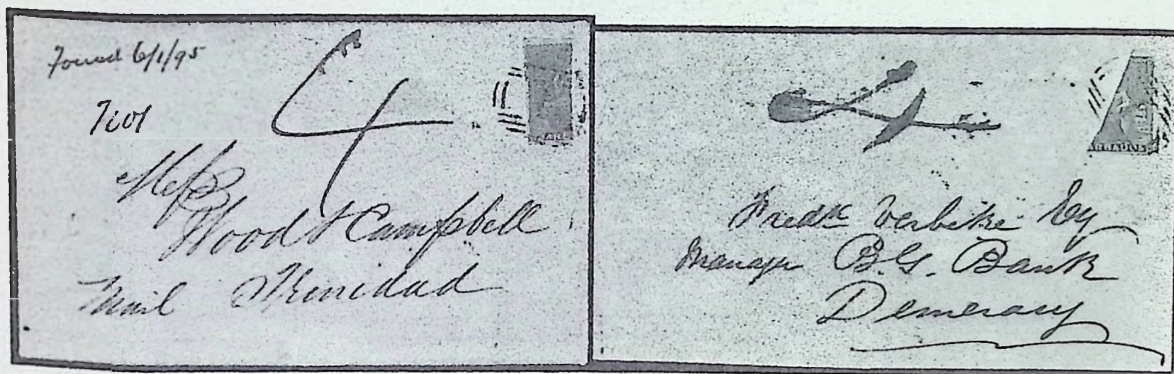 Found 6/1/95
4
Wood & Campbell
Mail Trinidad
4
Fredk Verbeke Esq
Manager B.G. Bank
Demerary